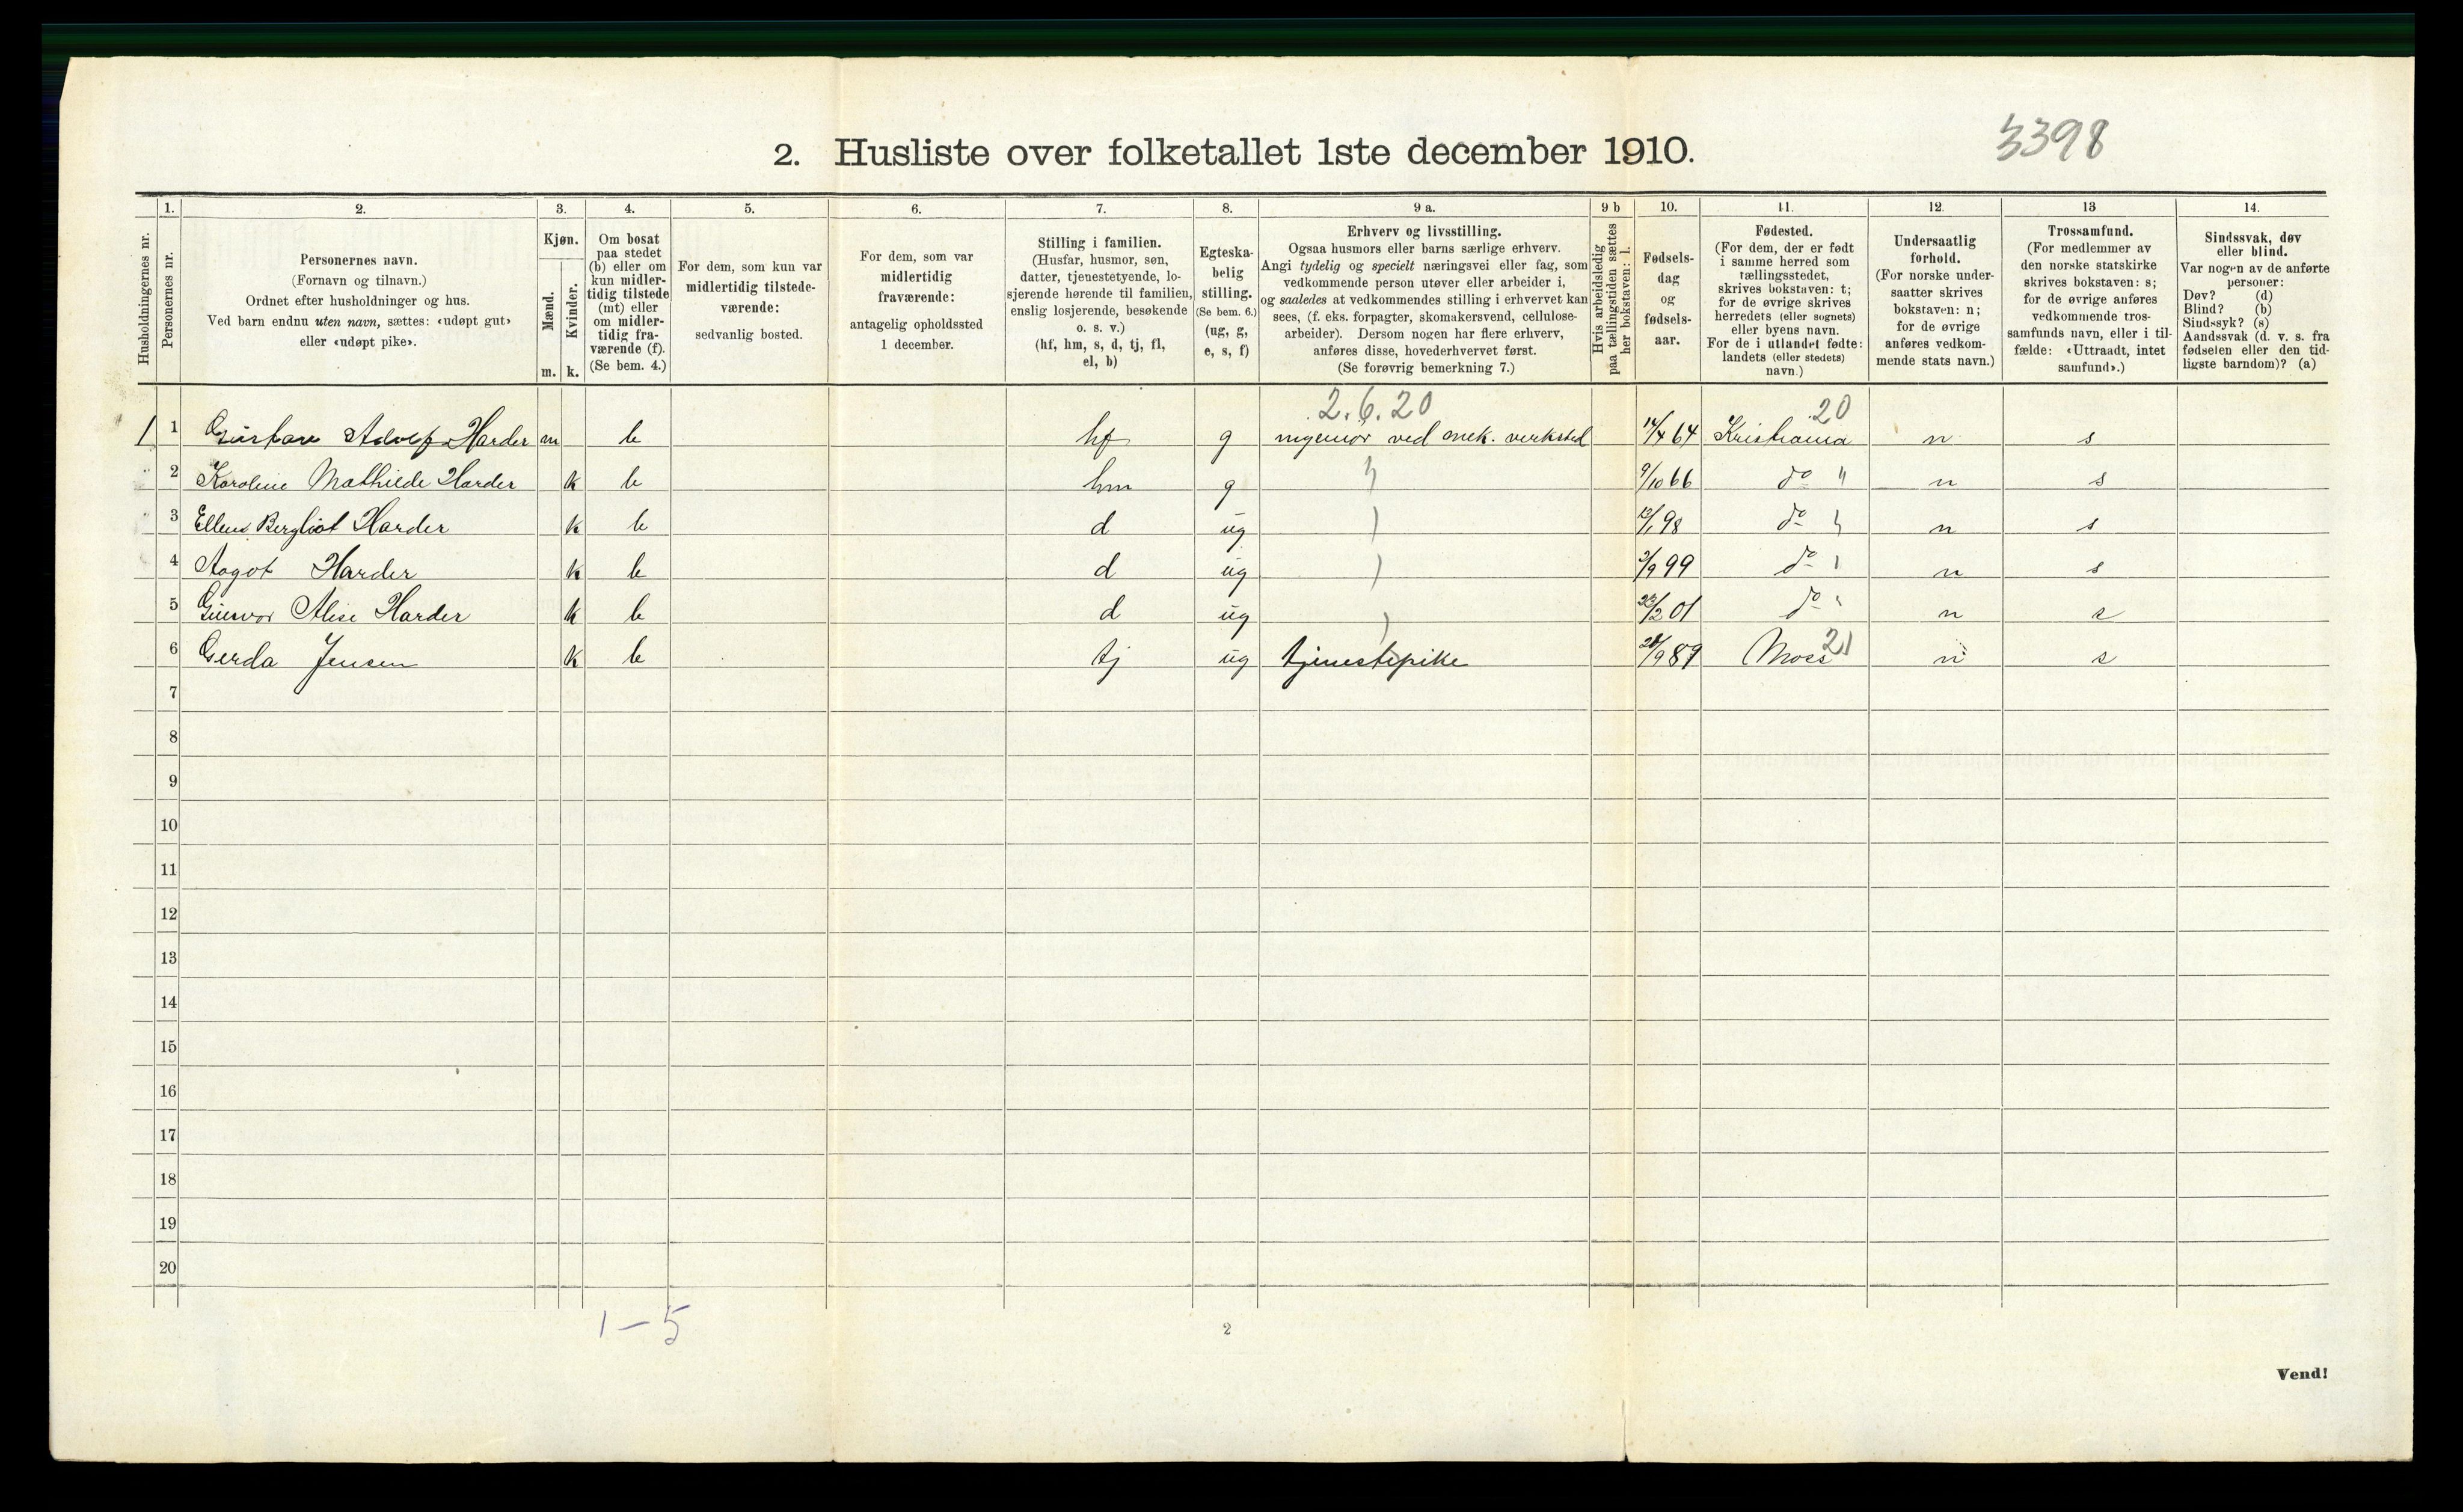 3398
2. Husliste over folketallet 1ste december 1910.
Husholdningernes nr.
1.
Personernes nr.
2.
Personernes navn.
(Fornavn og tilnavn.)
Ordnet efter husholdninger og hus.
Ved barn endnu uten navn, sættes: «udøpt gut»
eller «udøpt pike».
3.
Kjøn.
Mænd.
Kvinder.
m. k.
4.
Om bosat
paa stedet
(b) eller om
kun midler-
tidig tilstede
(mt) eller
om midler-
tidig fra-
værende (f).
(Se bem. 4.)
5.
For dem, som kun var
midlertidig tilstede-
værende:
sedvanlig bosted.
6.
For dem, som var
midlertidig
fraværende:
antagelig opholdssted
1 december.
7.
Stilling i familien.
(Husfar, husmor, søn,
datter, tjenestetyende, lo-
sjerende hørende til familien,
enslig losjerende, besøkende
o. s. v.)
(hf, hm, s, d, tj, fl,
el, b)
8.
Egteska-
belig
stilling.
(Se bem. 6.)
(ug, g,
e, s, f)
9 a.
Erhverv og livsstilling.
Ogsaa husmors eller barns særlige erhverv.
Angi tydelig og specielt næringsvei eller fag, som
vedkommende person utøver eller arbeider i,
og saaledes at vedkommendes stilling i erhvervet kan
sees, (f. eks. forpagter, skomakersvend, cellulose-
arbeider). Dersom nogen har flere erhverv,
anføres disse, hovederhvervet først.
(Se forøvrig bemerkning 7.)
9 b
Hvis arbeidsledig
paa tællingstiden sættes
her bokstaven: l.
10.
Fødsels-
dag
og
fødsels-
aar.
11.
Fødested.
(For dem, der er født
i samme herred som
tællingsstedet,
skrives bokstaven: t;
for de øvrige skrives
herredets (eller sognets)
eller byens navn.
For de i utlandet fødte:
landets (eller stedets)
navn.)
12.
Undersaatlig
forhold.
(For norske under-
saatter skrives
bokstaven: n;
for de øvrige
anføres vedkom-
mende stats navn.)
13
Trossamfund.
(For medlemmer av
den norske statskirke
skrives bokstaven: s;
for de øvrige anføres
vedkommende tros-
samfunds navn, eller i til-
fælde: «Uttraadt, intet
samfund».)
14.
Sindssvak, døv
eller blind.
Var nogen av de anførte
personer:
Døv? (d)
Blind? (b)
Sindssyk? (s)
Aandssvak (d. v. s. fra
fødselen eller den tid-
ligste barndom)? (a)
2.6.20 20
1 1 Gustave Adolf Harder m b hf g ingeniør ved mek. verksted 14/4 64 Kristiania n s
2 Karoline Mathilde Harder k b hm g 9/10 66 do " n s
3 Ellen Bergliot Harder k b d ug 12/1 98 do n s
4 Aagot Harder k b d ug 2/9 99 do n s
5 Gunvor Alise Harder k b d ug /2 01 do n s
6 Gerda Jensen k b tj ug tjenestepike 28/9 89 Moss 21 n s
7
8
9
10
11
12
13
14
15
16
17
18
19
20
1 – 5
2
Vend!